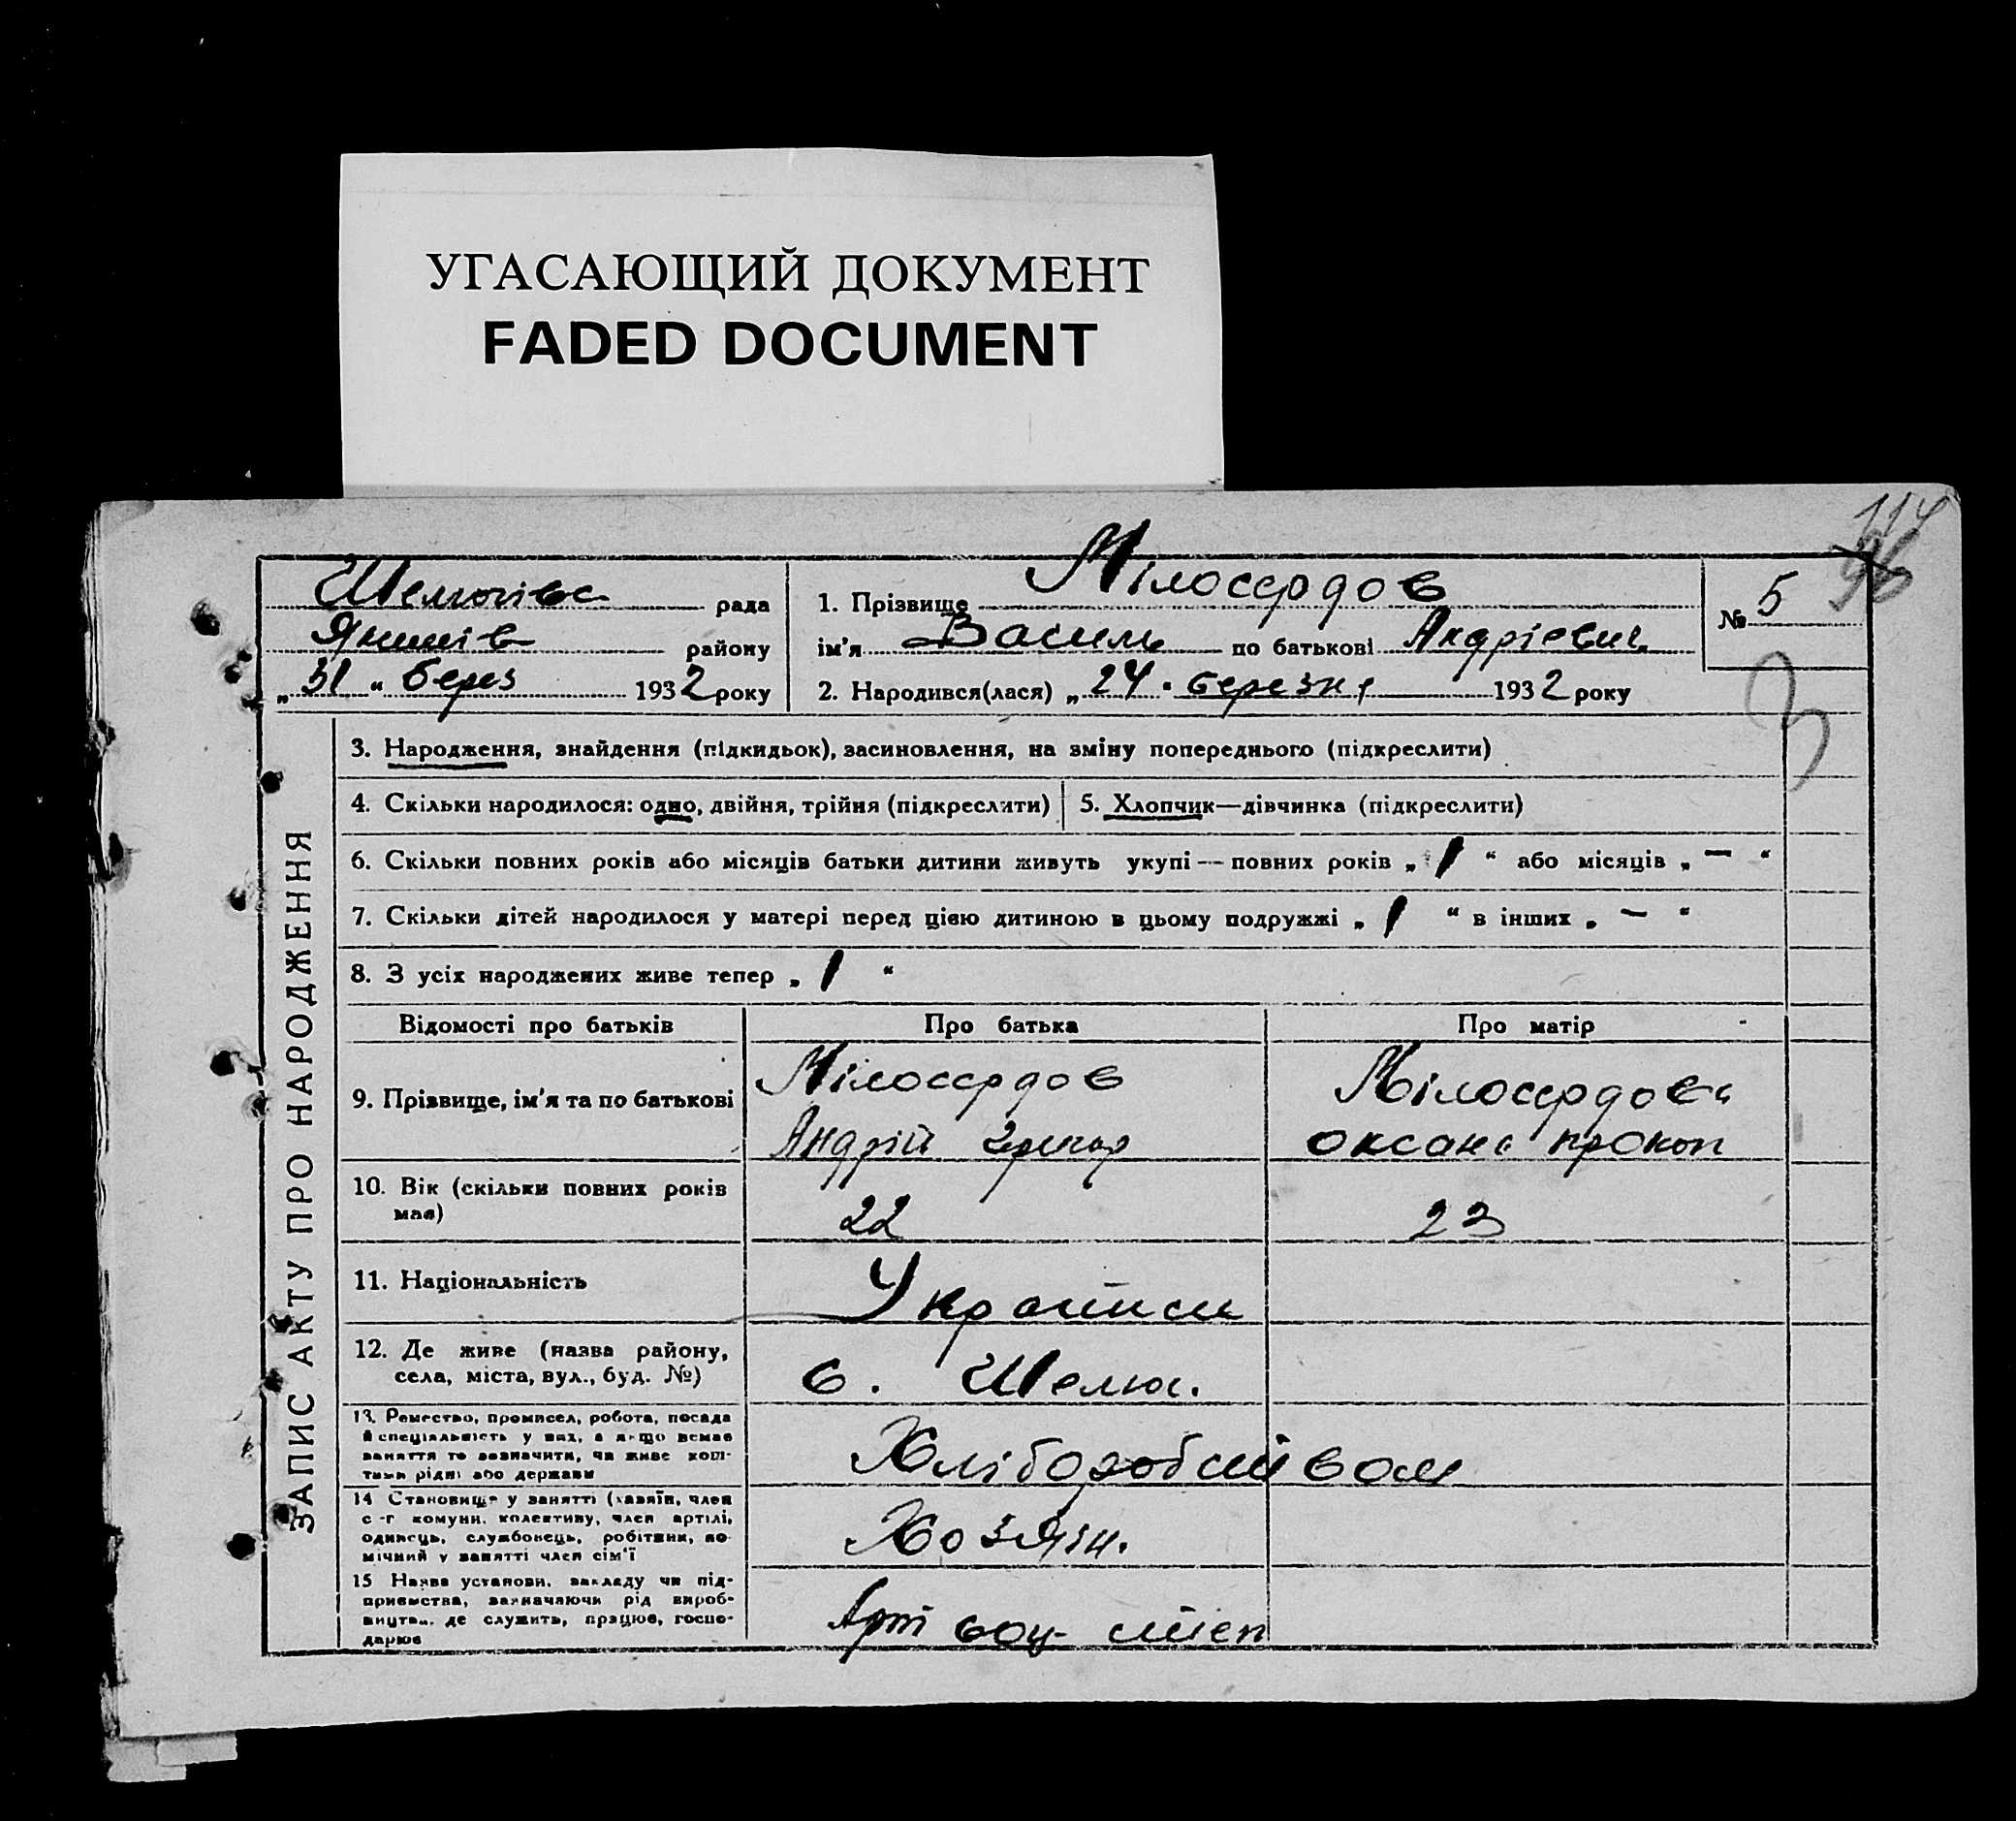 УГАСАЮЩИЙ ДОКУМЕНТ
FADED DOCUMENT
114
96
рада
району
„ 31 “ берез 1932 року
1. Прізвище Мілосердов
ім'я Василь по батькові Андрієвич
2. Народився(лася) „ 24 . березня 1932 року
№ 5
ЗАПИС АКТУ ПРО НАРОДЖЕННЯ
3. Народження, знайдення (підкидьок), засиновлення, на зміну попереднього (підкреслити)
4. Скільки народилося: одно, двійня, трійня (підкреслити)
5. Хлопчик—дівчинка (підкреслити)
6. Скільки повних років або місяців батьки дитини живуть укупі — повних років „ 1 “ або місяців „ — “
7. Скільки дітей народилося у матері перед цією дитиною в цьому подружжі „ 1 “ в інших „ — “
8. З усіх народжених живе тепер „ 1 “
Відомості про батьків
Про батька
Про матір
9. Прізвище, ім'я та по батькові
Мілосердов
Андрій Григор
Мілосердова
Оксана Прокоп
10. Вік (скільки повних років
має)
22
23
11. Національність
Українси
12. Де живе (назва району,
села, міста, вул., буд. №)
с. Шелюх.
13. Ремество, промисел, робота, посада
й спеціяльність у них, а якщо немає
заняття то зазначити, чи живе кош-
тами рідні або держави
Хліборобством
14 Становище у занятті (хазяїн, член
с.-г комуни, колективу, член артілі,
одинець, службовець, робітник, по-
мічний у занятті член сім'ї
Хозяїн.
15 Назва установи, закладу чи під-
приємства, зазначаючи рід вироб-
ництва, де служить, працює, госпо-
дарює
Арт соц степ